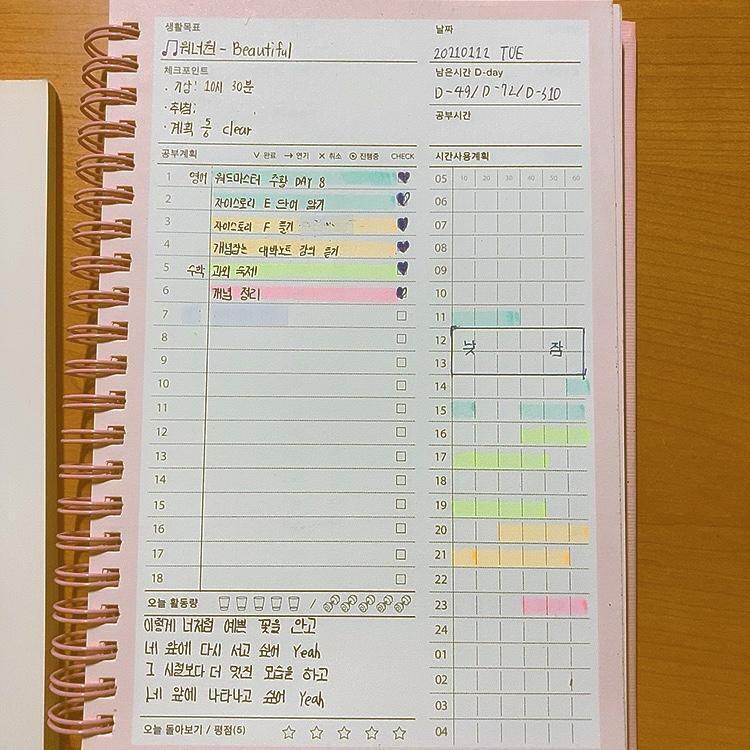 생활목표
워너원 - Beautiful
체크포인트
· 기상: 10시 30분
· 취침:
· 계획 5/6 clear
공부계획 ∨ 완료 → 연기 × 취소 ⊙ 진행중 CHECK
1 영어 워드마스터 수황 DAY 8
2 자이스토리 E 단어 암기
3 자이스토리 F 풀기
4 개념잡는 대박노트 강의 듣기
5 수학 과외 숙제!
6 개념 정리
7
8
9
10
11
12
13
14
15
16
17
18
오늘 활동량 /
이렇게 너처럼 예쁜 꽃을 안고
네 앞에 다시 서고 싶어 Yeah
그 시절보다 더 멋진 모습을 하고
네 앞에 나타나고 싶어 Yeah
오늘 돌아보기 / 평점(5)
날짜
20210112 TUE
남은시간 D-day
D-49/D-72/D-310
공부시간
시간사용계획
05 10 20 30 40 50 60
06
07
08
09
10
11
12 낮 잠
13
14
15
16
17
18
19
20
21
22
23
24
01
02
03
04